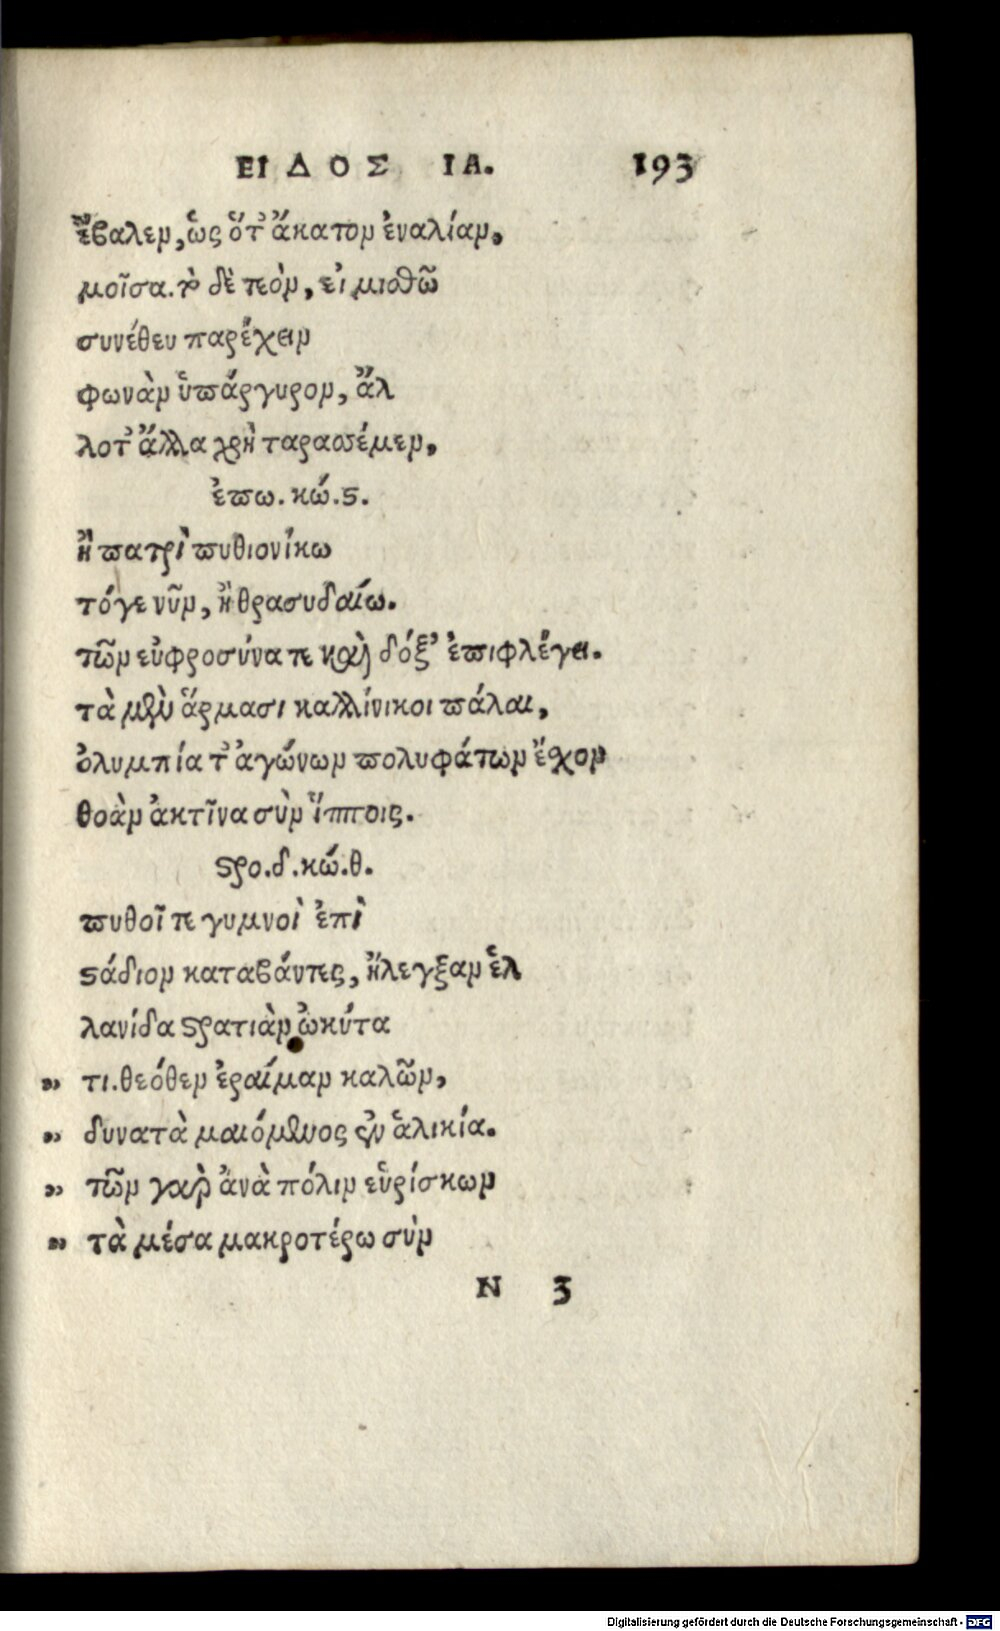 ΕΙΔΟΣ ΙΑ. 193
ἔβαλεν, ὡς ὅτ' ἄκατον ἐναλίαν,
μοῖσα. τὸ δὲ τεὸν, εἰ μισθῶ
συνέθευ παρέχειν
φωνὰν ὑπάργυρον, ἄλ
λοτ' ἄλλα χρὴ ταρασσέμεν,
ἐπω. κώ. ϛ.
ἢ πατρὶ πυθιονίκω
τόγε νῦν, ἢ θρασυδαίω.
τῶν εὐφροσύνα τε καὶ δόξ' ἐπιφλέγει.
τὰ μὲν ἅρμασι καλλίνικοι πάλαι,
ὀλυμπία τ' ἀγώνων πολυφάτων ἔχον
θοὰν ἀκτῖνα σὺν ἵπποις.
ϛρο. δ. κώ. θ.
πυθοῖ τε γυμνοὶ ἐπὶ
ϛάδιον καταβάντες, ἤλεγξαν ἑλ
λανίδα ϛρατιὰν ὠκύτα
„ τι. θεόθεν ἐραίμαν καλῶν,
„ δυνατὰ μαιόμενος ἐν ἁλικία.
„ τῶν γὰρ ἀνὰ πόλιν εὑρίσκων
„ τὰ μέσα μακροτέρω σὺν
N 3
Digitalisierung gefördert durch die Deutsche Forschungsgemeinschaft - DFG